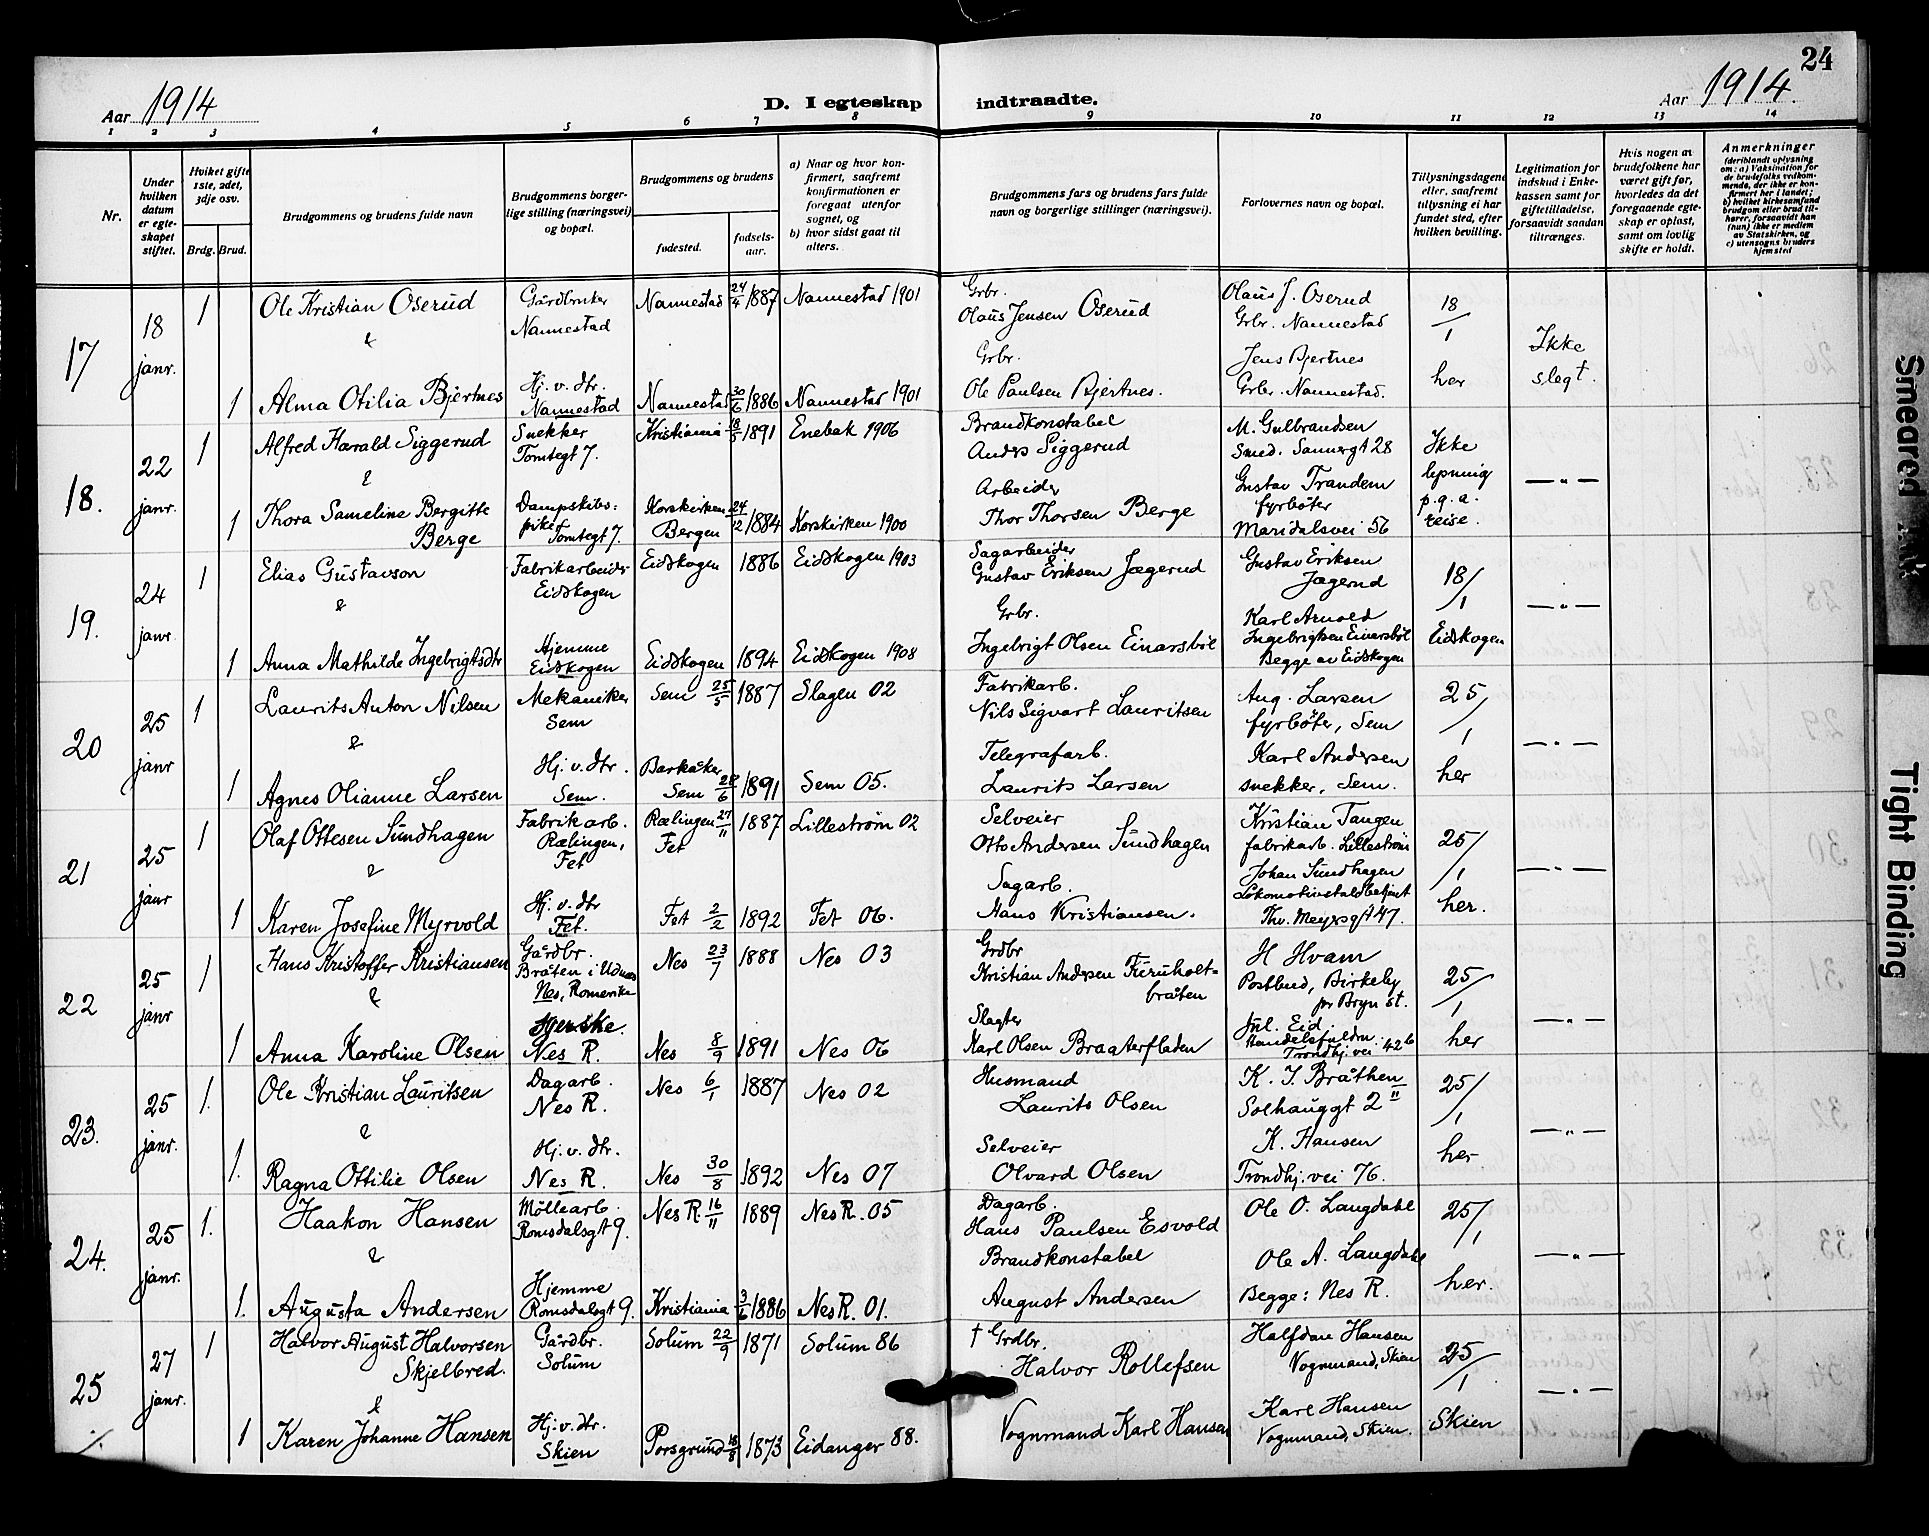 24
Aar 1914
D. I egteskap indtraadte.
Aar 1914.
1 2 3 4 5 6 7 8 9 10 11 12 13 14
Nr.
Under hvilken datum er egteskapet stiftet.
Hvilket gifte 1ste, 2det, 3dje osv.
Brdg. Brud.
Brudgommens og brudens fulde navn
Brudgommens borgerlige stilling (næringsvei) og bopæl.
Brudgommens og brudens
fødested.
fødselsaar.
a) Naar og hvor konfirmert, saafremt konfirmationen er foregaat utenfor sognet, og
b) hvor sidst gaat til alters.
Brudgommens fars og brudens fars fulde navn og borgerlige stillinger (næringsvei).
Forlovernes navn og bopæl.
Tillysningsdagene eller, saafremt tillysning ei har fundet sted, efter hvilken bevilling.
Legitimation for indskud i Enkekassen samt for giftetilladelse, forsaavidt saadan tiltrænges.
Hvis nogen av brudefolkene har været gift før, hvorledes da det foregaaende egteskap er opløst, samt om lovlig skifte er holdt.
Anmerkninger
(deriblandt oplysning om: a) Vaksination for de brudefolks vedkommende, der ikke er konfirmert her i landet; b) hvilket kirkesamfund brudgom eller brud tilhører, forsaavidt han (hun) ikke er medlem av Statskirken, og c) utensogns bruders hjemsted
17 18 janr. 1 Ole Kristian Oserud Gårdbruker Nannestad Nannestad 24/4 1887 Nannestad 1901 Grbr. Olaus Jensen Oserud Olaus J. Oserud Grbr. Nannestad 18/1 her Ikke slegt.
&
1 Alma Otilia Bjertnes Hj. v. dtr. Nannestad Nannestad 30/6 1886 Nannestad 1901 Grbr. Ole Paulsen Bjertnes. Jens Bjertnes Grbr. Nannestad.
18. 22 janr. 1 Alfred Harald Siggerud Snekker Tomtegt 7. Kristiania 18/5 1891 Enebak 1906 Brandkonstabel Anders Siggerud M. Gulbrandsen Smed. Sannergt 28 Ikke lysning p.g.a. reise. — " —
&
1 Thora Sameline Bergitte Berge Dampskibs: pike Tomtegt 7. Korskirken Bergen 24/12 1884 Korskirken 1900 Arbeider Thor Thorsen Berge Gustav Trandem fyrbøter Maridalsvei 56
19. 24 janr 1 Elias Gustavson Fabrikarbeider Eidskogen Eidskogen 1886 Eidskogen 1903 Sagarbeider Gustav Eriksen Jægerud Gustav Eriksen Jægerud 18/1 Eidskogen — " —
&
1 Anna Mathilde Ingebrigtsdtr Hjemme Eidskogen Eidskogen 1894 Eidskogen 1908 Grbr. Ingebrigt Olsen Einarsböl Karl Arnold Ingebrigtsen Einarsböl Begge av Eidskogen
20 25 janr 1 Laurits Anton Nilsen Mekaniker Sem Sem 25/5 1887 Slagen 02 Fabrikarb. Nils Sigvart Lauritsen Aug. Larsen fyrbøter, Sem 25/1 her — " —
&
1 Agnes Olianne Larsen Hj. v. dtr. Sem. Barkåker Sem 28/6 1891 Sem 05. Telegrafarb. Laurits Larsen Karl Andersen snekker, Sem.
21 25 janr 1 Olaf Ottesen Sundhagen Fabrikarb. Rælingen, Fet Rælingen Fet 27/11 1887 Lillestrøm 02 Selveier Otto Andersen Sundhagen Kristian Tangen fabrikarb. Lillestrøm 25/1 her. — " —
&
1 Karen Josefine Myrvold Hj. v. dtr Fet. Fet 2/2 1892 Fet 06. Sagarb. Hans Kristiansen. Johan Sundhagen Lokomotivstaldbetjent Thv. Meyersgt 47.
22 25 janr 1 Hans Kristoffer Kristiansen Gårdbr. Bråten i Udnes Nes, Romerike Nes 23/7 1888 Nes 03 Grdbr Kristian Andersen Furuholt=bråten H Hvam Postbud, Birkeby pr Bryn st. 25/1 her — " —
&
1 Anna Karoline Olsen Nes R. Nes 8/9 1891 Nes 06 Slagter Karl Olsen Braaterfladen Jul. Eid. Trondhj. vei 42b
23. 25 janr. 1. Ole Kristian Lauritsen Dagarb. Nes R. Nes 6/1 1887 Nes 02 Husmand Laurits Olsen K. J. Bråthen Solhauggt 2 II 25/1 her — " —
&
1. Ragna Ottilie Olsen Hj. v. dtr. Nes R. Nes 30/8 1892 Nes 07 Selveier Olvard Olsen K. Hansen Trondhj. vei 76.
24. 25 janr. 1. Haakon Hansen Möllearb. Romsdalsgt 9. Nes R. 16/11 1889 Nes R. 05 Dagarb. Hans Paulsen Esvold Ole O. Langdahl 25/1 her. — " —
&
1. Augusta Andersen Hjemme Romsdalsgt 9. Kristiania 3/6 1886 Nes R. 01. Brandkonstabel August Andersen Ole A. Langdahl Begge: Nes R.
25 27 janr. 1 Halvor August Halvorsen Skjelbred. Gårdbr. Solum Solum 22/9 1871 Solum 86 † Grdbr. Halvor Rollefsen Halfdan Hansen Vognmand, Skien 25/1 Skien — " —
&
1 Karen Johanne Hansen Hj. v. dtr. Skien Porsgrund 18/8 1873 Eidanger 88. Vognmand Karl Hansen Karl Hansen Vognmand, Skien.
./.
Smeared Ink
Tight Binding